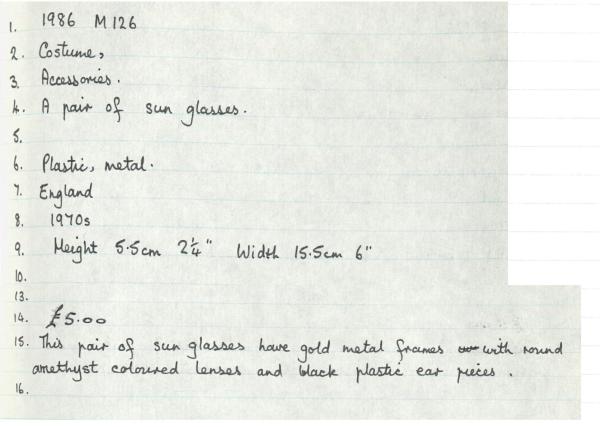 1. 1986 M126
2. Costume,
3. Accessories.
4. A pair of sun glasses.
5.
6. Plastic, metal.
7. England
8. 1970s
9. Height 5.5cm 2¼" Width 15.5cm 6"
10.
13.
14. £5.00
15. This pair of sun glasses have gold metal frames with round
amethyst coloured lenses and black plastic ear pieces.
16.